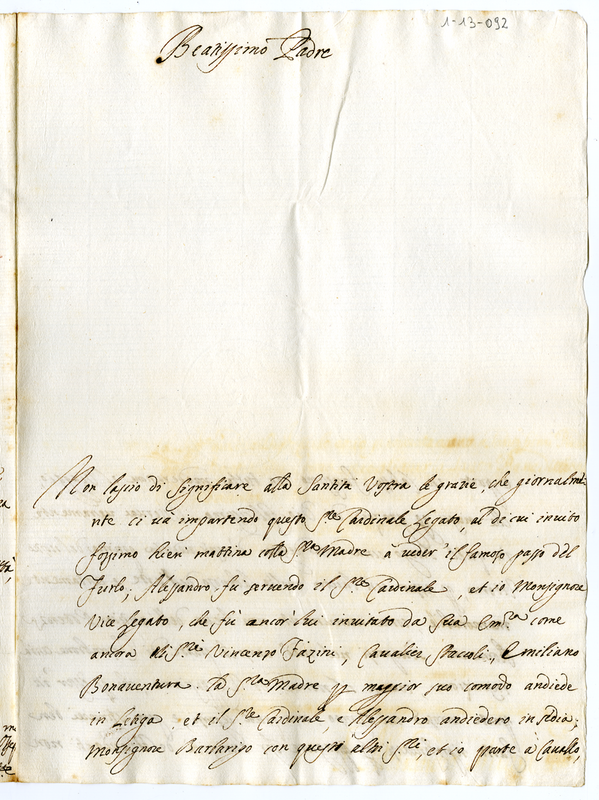 1-13-092
Beatissimo Padre
Non lascio di significare alla Santità Vostra le grazie, che giornalme-
nte ci và impartendo questo S.re Cardinale Legato, al di cui invito
fossimo hieri mattina colla S.ra Madre à veder' il famoso passo del
Furlo; Alessandro fù servendo il S.re Cardinale, et io Monsignore
Vice Legato, che fù ancor' lui invitato da Sua Em.za come
ancora li S.ri Vincenzo Fazini, Cavalier Staccoli, Emiliano
Bonaventura. la S.ra Madre p maggior suo comodo andiede
in Letiga, et il S.re Cardinale, e Alessandro andiedero in sedia;
Monsignore Barbarigo con questi altri S.ri, et io parte à Cavallo,